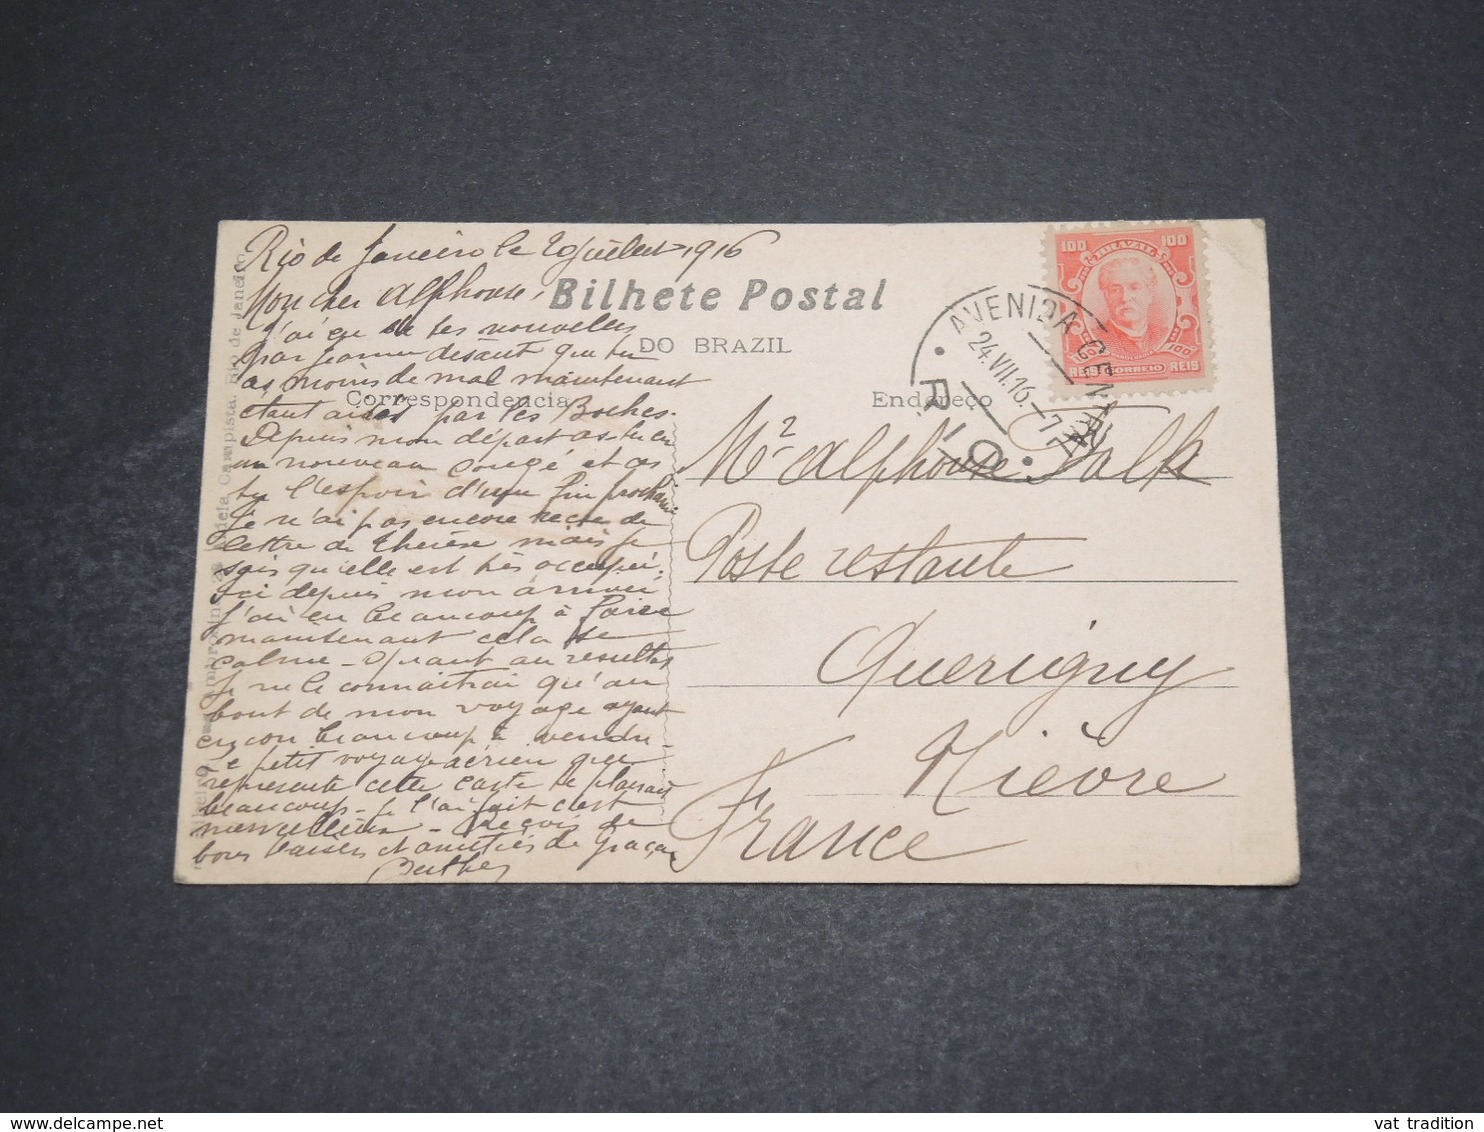 Rio de Janeiro le 20 Juillet 1916
Mon cher Alphonse,
J'ai eu de tes nouvelles
par Jeanne disant que tu
as moins de mal maintenant
étant aidés par les Boches.
Depuis mon départ as-tu eu
un nouveau congé et as
tu l'espoir d'une fin prochaine
Je n'ai pas encore reçue de
lettre de Thérèse mais je
sais qu'elle est très occupée.
Ici depuis mon arrivée
J'ai eu beaucoup à faire
maintenant cela se
calme - Quant au résultat
Je ne le connaitrai qu'au
bout de mon voyage ayant
encore beaucoup à vendre
Le petit voyage aérien que
représente cette carte te plairait
beaucoup - je l'ai fait c'est
merveilleux - Reçois de
bons baisers et amitiés de
Berthe
Bilhete Postal
DO BRAZIL
Correspondencia
Endereço
100 BRAZIL 100
REIS CORREIO REIS
AVENIDA CENTRAL
24.VII.16.-7
RIO
Mr Alphonse Falk
Poste restante
Guerigny
Nièvre
France
Rio de Janeiro
vat tradition